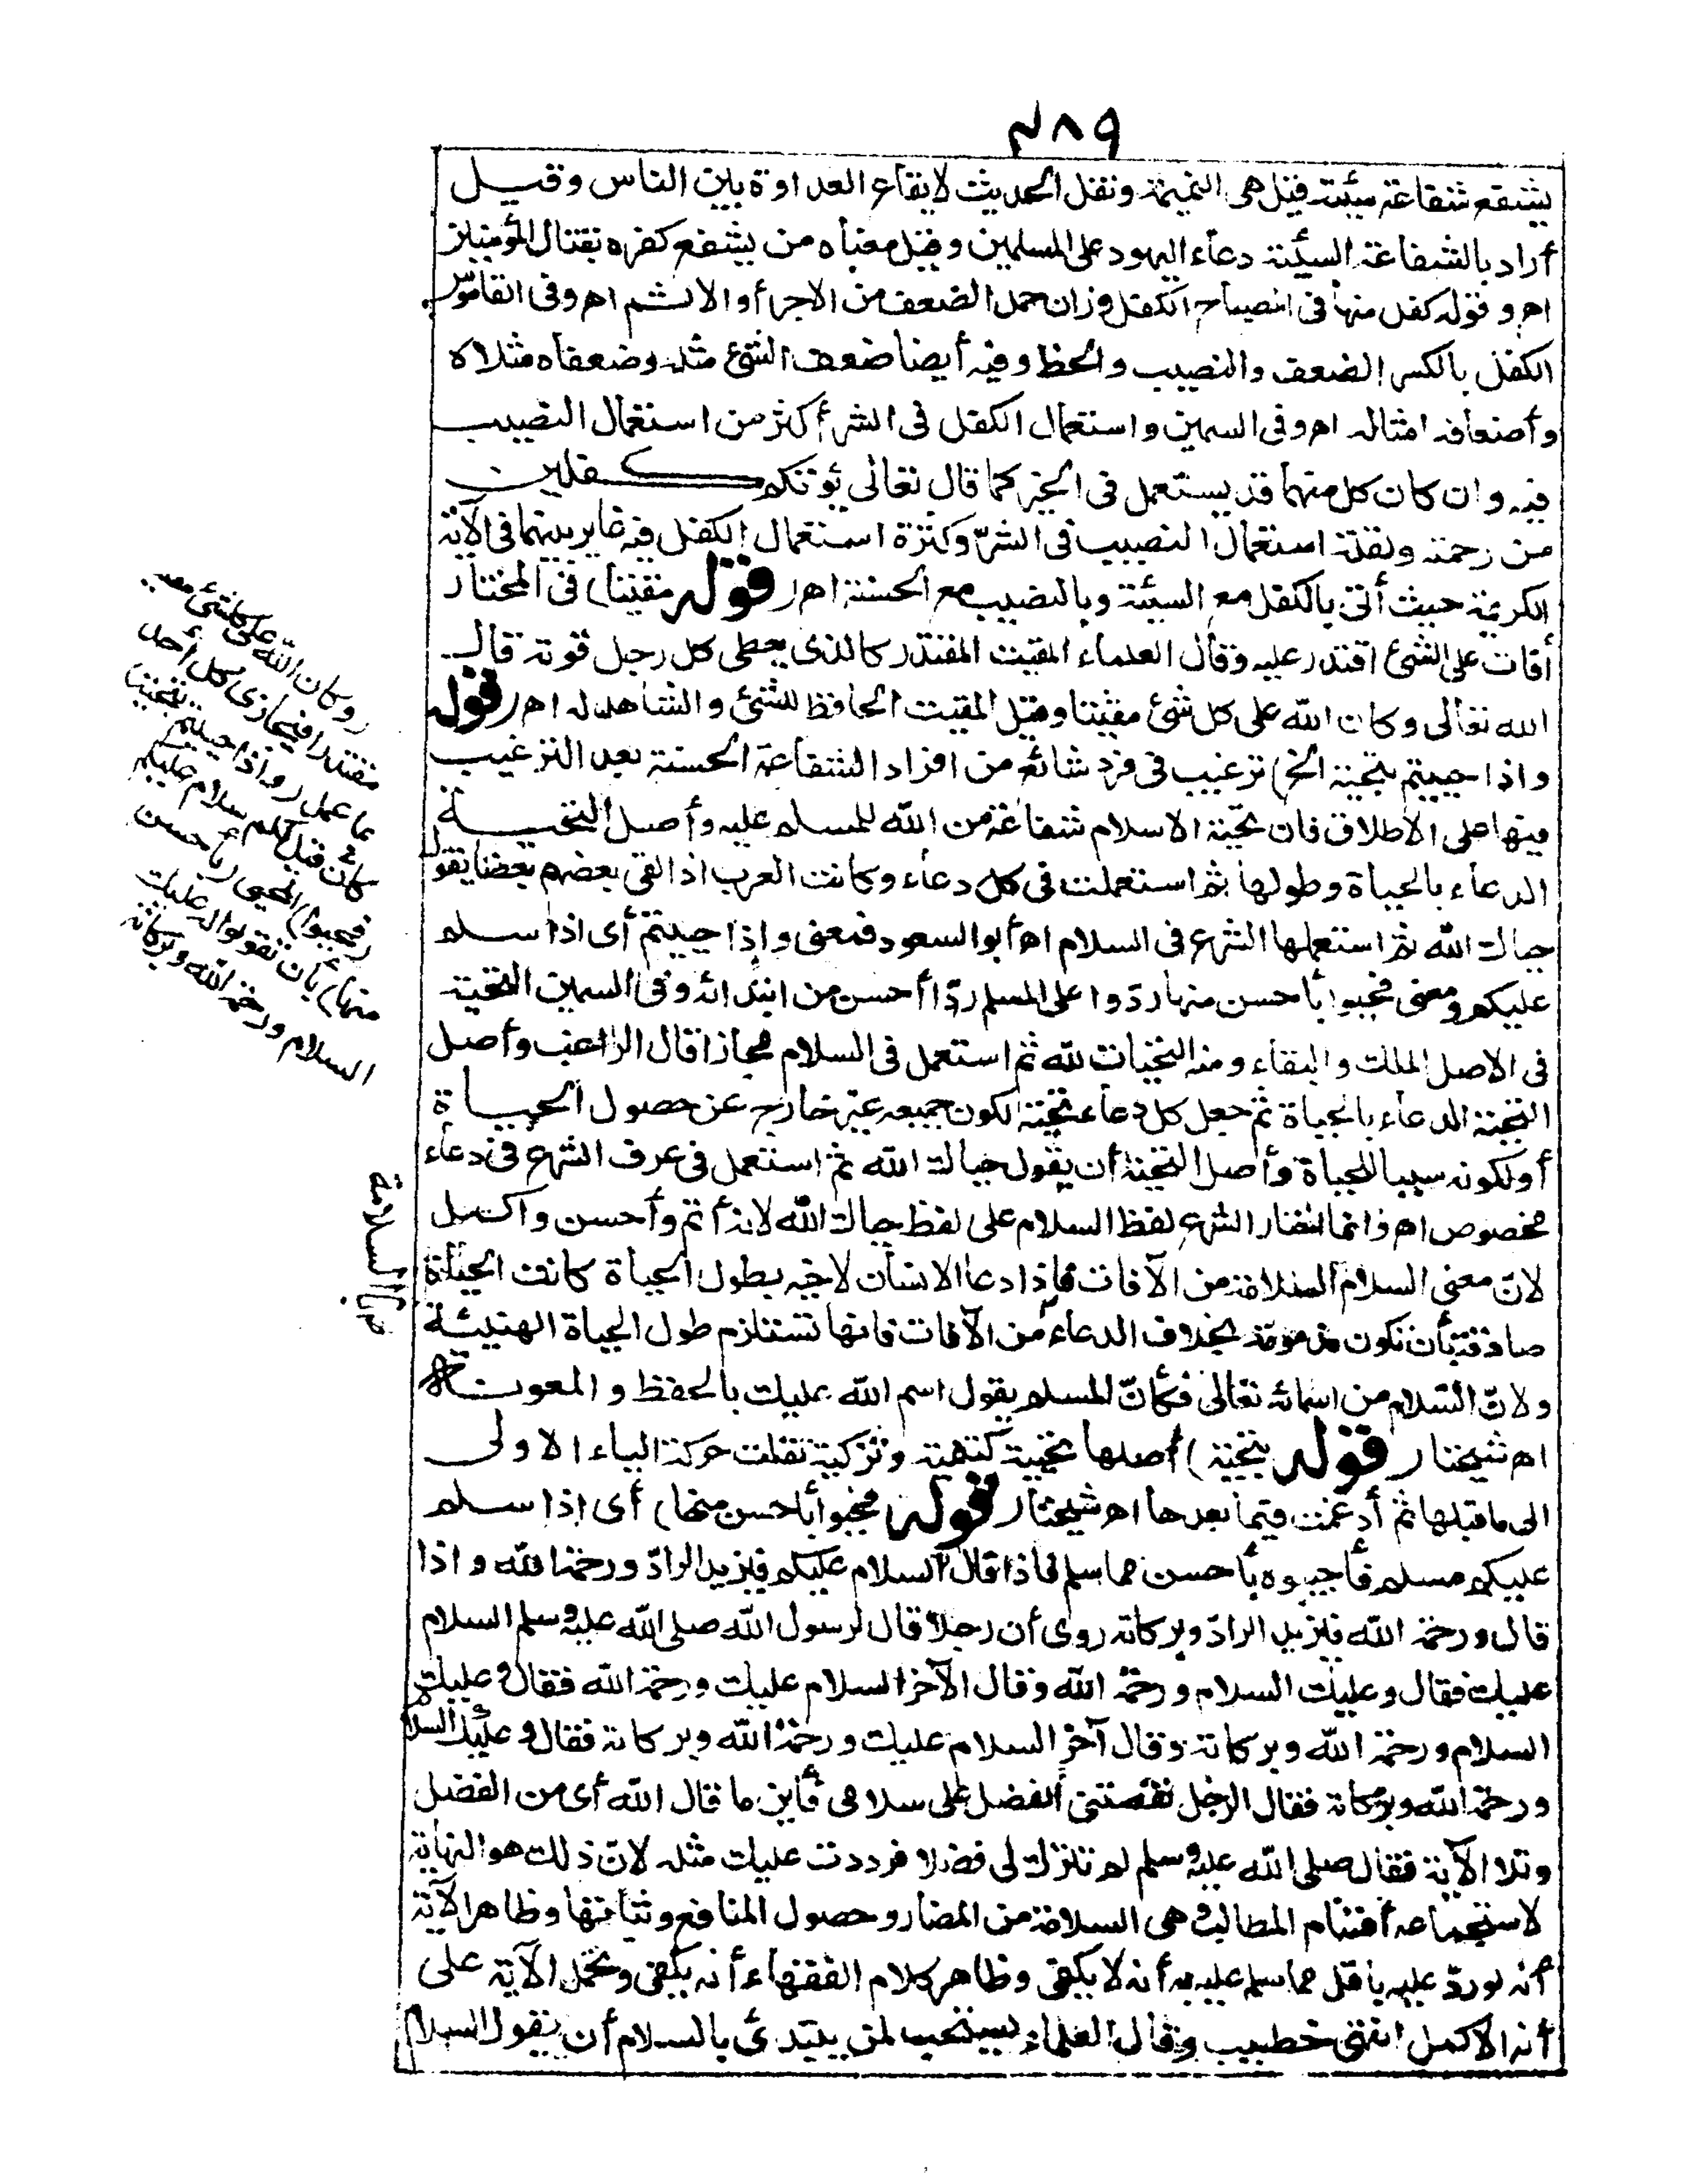 ٤٨٩
يشفع شفاعة سيئة فقيل هى النميمة ونقل الحديث لايقاع العداوة بين الناس وقيل
أراد بالشفاعة السيئة دعاء اليهود على المسلمين وقيل معناه من يشفع كفره بقتال المؤمنين
اهـ وقوله كفل منها فى المصباح الكفل وزان حمل الضعف من الاجر أو الاثم اهـ وفى القاموس
الكفل بالكسر الضعف والنصيب والحظ وفيه أيضا ضعف الشئ مثله وضعفاه مثلاه
وأضعافه امثاله اهـ وفى السمين واستعمال الكفل فى الشر أكثر من استعمال النصيب
فيه وان كان كل منهما قد يستعمل فى الخير كما قال تعالى يؤتكم كفلين
من رحمته ولقلة استعمال النصيب فى الشرّ وكثرة استعمال الكفل فيه غاير بينهما فى الآية
الكريمة حيث أتى بالكفل مع السيئة وبالنصيب مع الحسنة اهـ (قوله مقيتا) فى المختار
أقات على الشئ اقتدر عليه وقال العلماء المقيت المقتدر كالذى يعطى كل رجل قوته قال
الله تعالى وكان الله على كل شئ مقيتا وقيل المقيت الحافظ للشئ والشاهد له اهـ (قوله
واذا حييتم بتحية الخ) ترغيب فى فرد شائع من افراد الشفاعة الحسنة بعد الترغيب
فيها على الاطلاق فان تحية الاسلام شفاعة من الله للمسلم عليه وأصل التحية
الدعاء بالحياة وطولها ثم استعملت فى كل دعاء وكانت العرب اذا لقى بعضهم بعضا يقول
حياك الله ثم استعملها الشرع فى السلام اهـ أبو السعود فمعنى واذا حييتم أى اذا سلم
عليكم ومعنى فحيوا بأحسن منها ردّوا على المسلم ردّا أحسن من ابتدائه وفى السمين التحية
فى الاصل الملك والبقاء ومنه التحيات لله ثم استعمل فى السلام مجازا قال الراغب وأصل
التحية الدعاء بالحياة ثم جعل كل دعاء تحية لكون جميعه غير خارج عن حصول الحياة
أو لكونه سببا للحياة وأصل التحية أن يقول حياك الله ثم استعمل فى عرف الشرع فى دعاء
مخصوص اهـ وانما اختار الشرع لفظ السلام على لفظ حياك الله لانه أتم وأحسن وأكمل
لانّ معنى السلام السلامة من الآفات فاذا دعا الانسان لاخيه بطول الحياة كانت الحياة
صادقة بأن تكون مذمومة بخلاف الدعاء من الآفات فانها تستلزم طول الحياة الهنيئة
ولانّ السّلام من اسمائه تعالى فكأنّ المسلم يقول اسم الله عليك بالحفظ والمعونة
اهـ شيخنا (قوله بتحية) أصلها تحيية كتنمية وتزكية نقلت حركة الياء الاولى
الى ما قبلها ثم أدغمت فيما بعدها اهـ شيخنا (قوله فحيوا بأحسن منها) أى اذا سلم
عليكم مسلم فأجيبوه بأحسن مما سلم فاذا قال السلام عليكم فيزيد الرادّ ورحمة الله واذا
قال ورحمة الله فيزيد الرادّ وبركاته روى أن رجلا قال لرسول الله صلى الله عليه وسلم السلام
عليك فقال وعليك السلام ورحمة الله وقال الآخر السلام عليك ورحمة الله فقال وعليك
السلام ورحمة الله وبركاته وقال آخر السلام عليك ورحمة الله وبركاته فقال وعليك السلام
ورحمة الله وبركاته فقال الرجل نقصتنى الفضل على سلامى فأين ما قال الله أى من الفضل
وتلا الآية فقال صلى الله عليه وسلم لم تترك لى فضلا فرددت عليك مثله لانّ ذلك هو النهاية
لاستجماعه أقسام المطالب وهى السلامة من المضار وحصول المنافع وثباتها وظاهر الآية
أنه لو ردّ عليه بأقل مما سلم عليه به أنه لا يكفى وظاهر كلام الفقهاء أنه يكفى وتحمل الآية على
أنه الاكمل انتهى خطيب وقال العلماء يستحب لمن يبتدئ بالسلام أن يقول السلام
(وكان الله على كل شئ مقيتا)
مقتدرا فيجازى كل أحد
بما عمل (واذا حييتم بتحية)
كأن قيل لكم سلام عليكم
(فحيوا) المحيى (بأحسن
منها) بأن تقولوا له عليك
السلام ورحمة الله وبركاته
من السلامة